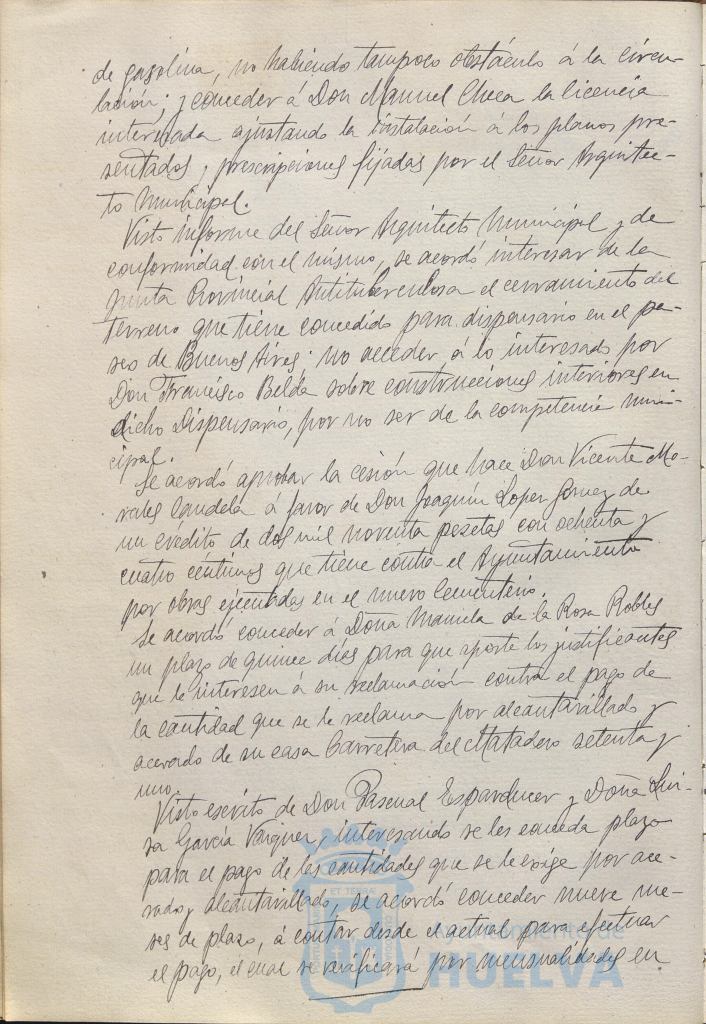 de gasolina, no habiendo tampoco obstáculo á la circu-
lación; y conceder á Don Manuel Checa la licencia
interesada ajustando la instalación á los planos pre-
sentados y prescripciones fijadas por el Señor Arquitec-
to Municipal.
Visto informe del Señor Arquitecto Municipal y de
conformidad con el mismo, se acordó interesar de la
Junta Provincial Antituberculosa el cerramiento del
terreno que tiene concedido para dispensario en el pa-
seo de Buenos Aires; no acceder á lo interesado por
Don Francisco Belda sobre construcciones interiores en
dicho Dispensario, por no ser de la competencia muni-
cipal.
Se acordó aprobar la cesión que hace Don Vicente Mo-
rales Candela á favor de Don Joaquín Lopez Gomez de
un crédito de dos mil noventa pesetas con ochenta y
cuatro centimos que tiene contra el Ayuntamiento
por obras ejecutadas en el nuevo Cementerio.
Se acordó conceder á Doña Manuela de la Rosa Robles
un plazo de quince días para que aporte los justificantes
que le interesen á su reclamación contra el pago de
la cantidad que se le reclama por alcantarillado y
acerado de su casa Carretera del Matadero setenta y
uno.
Visto escrito de Don Pascual Esparducer y Doña Lui-
sa García Varquer, interesando se les conceda plazo
para el pago de las cantidades que se le exige por ace-
rado y alcantarillado, se acordó conceder nueve me-
ses de plazo, á contar desde el actual para efectuar
el pago, el cual se verificará por mensualidades en
ET TERRAE
Ayuntamiento de
HUELVA